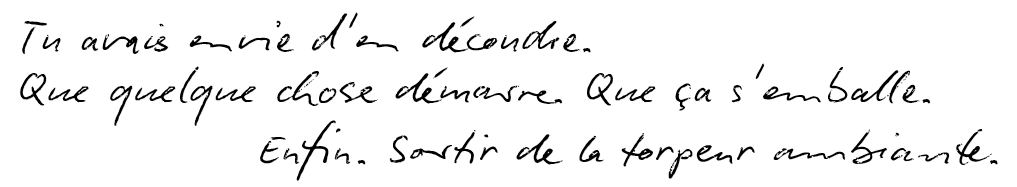 Tu avais envie d'en découdre.
Que quelque chose démarre. Que ça s'emballe.
Enfin. Sortir de la torpeur ambiante.